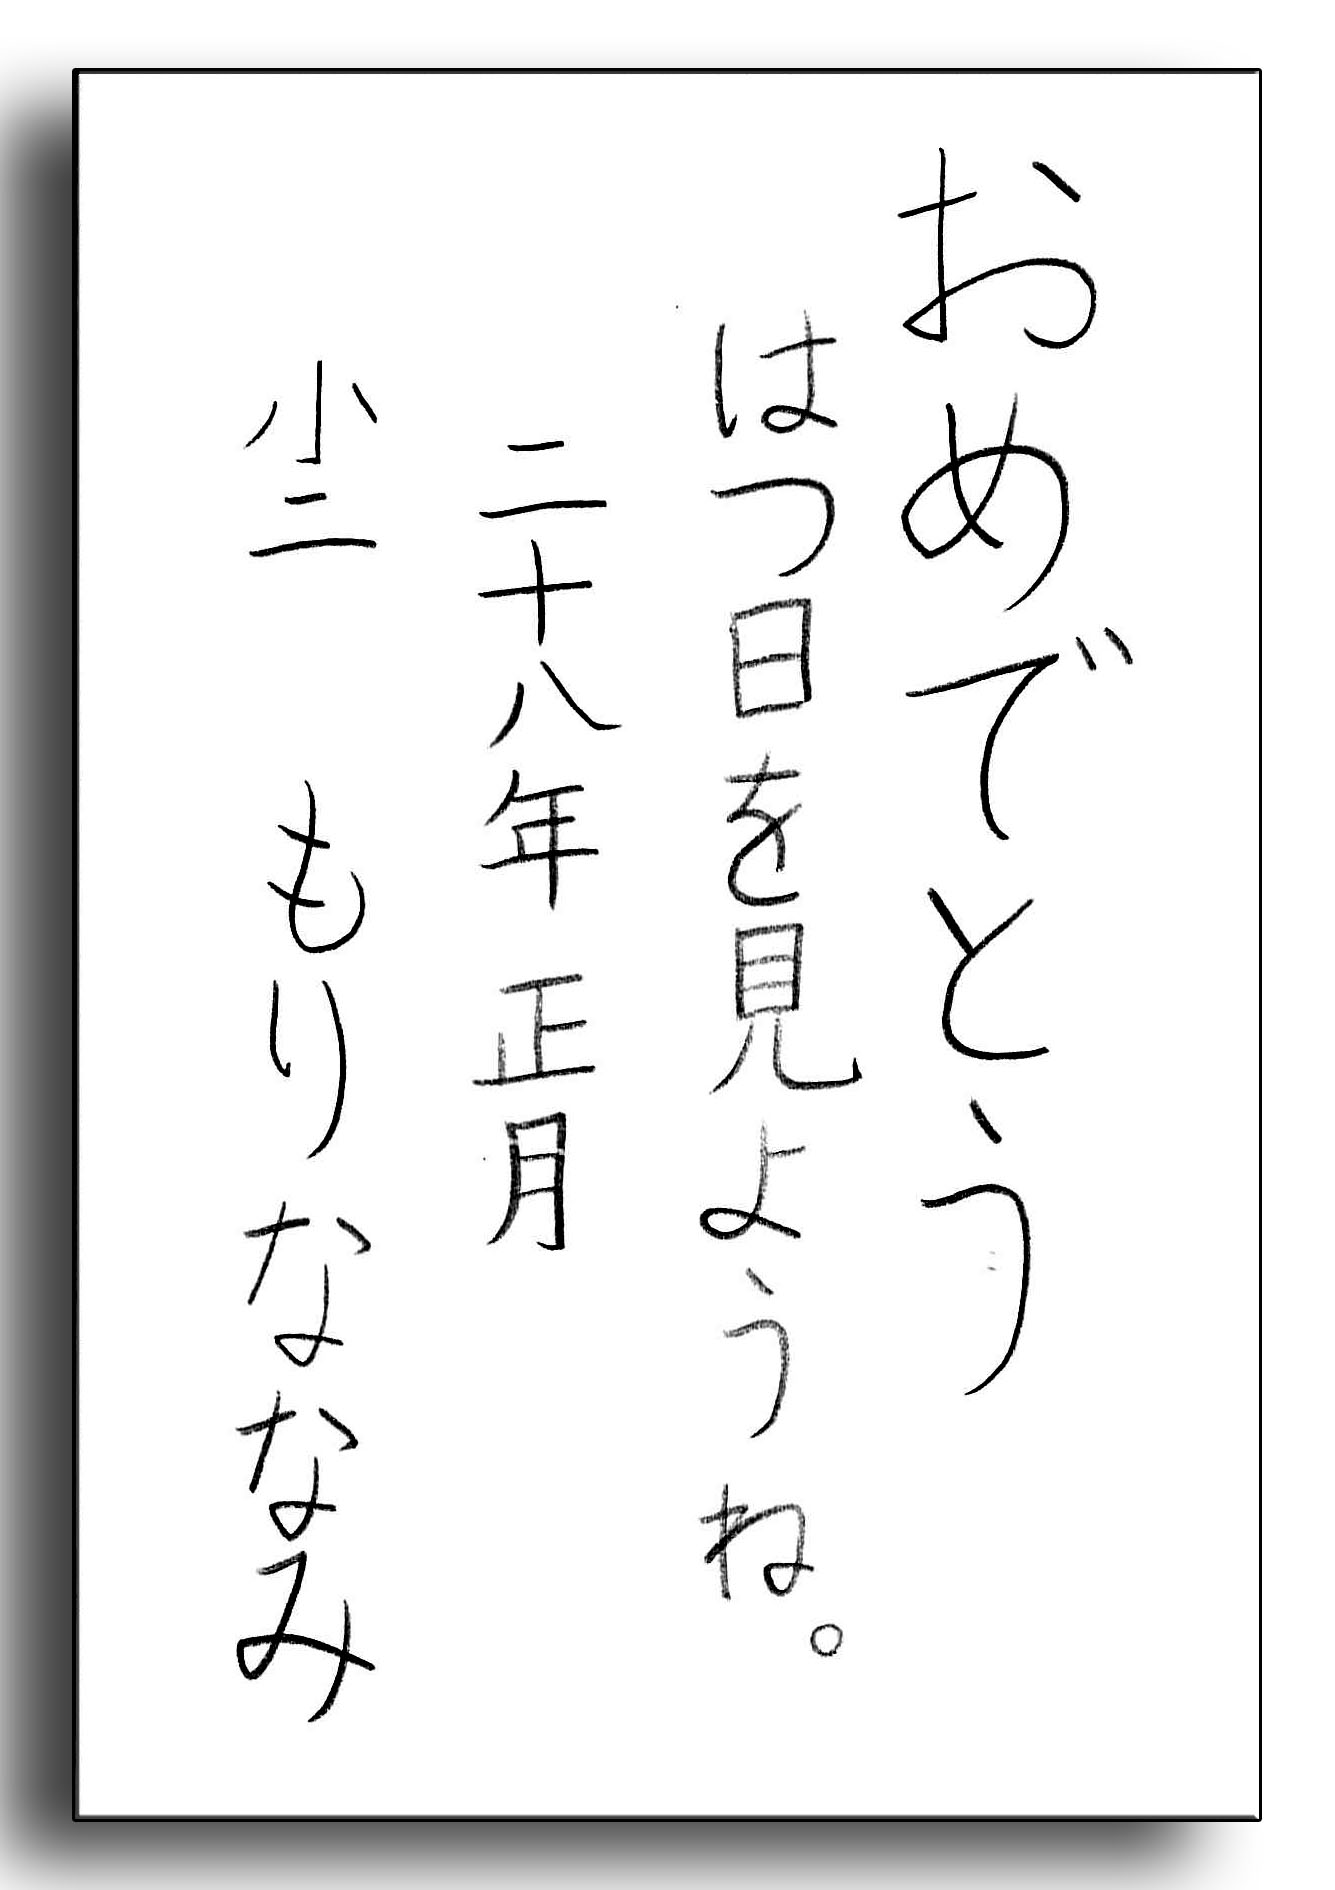 おめでとう
はつ日を見ようね。
二十八年正月
小二 もりななみ